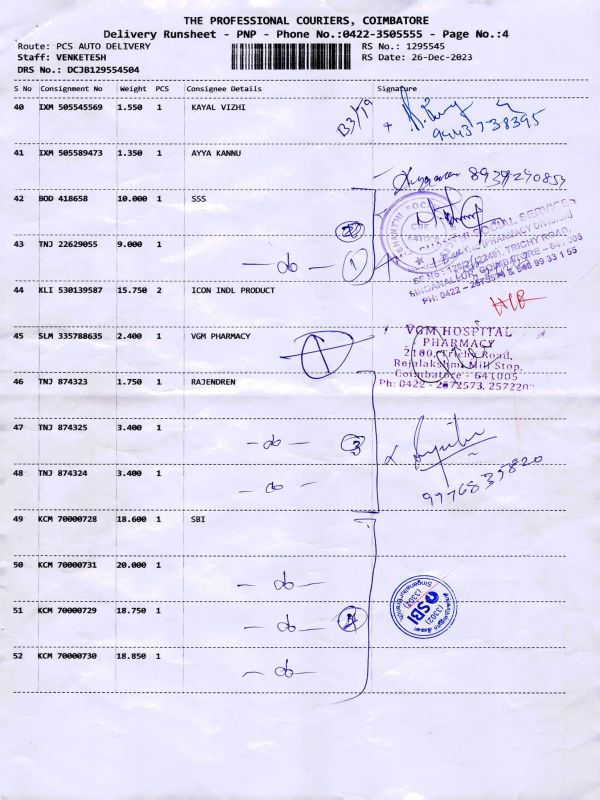 THE PROFESSIONAL COURIERS, COIMBATORE
Delivery Runsheet - PNP - Phone No.:0422-3505555 - Page No.:4
Route: PCS AUTO DELIVERY
RS No.: 1295545
Staff: VENKETESH
RS Date: 26-Dec-2023
DRS No.: DCJB129554504
S No Consignment No Weight PCS Consignee Details Signature
40 IXM 505545569 1.550 1 KAYAL VIZHI
9443738395
41 IXM 505589473 1.350 1 AYYA KANNU
8939240859
42 BOD 418658 10.000 1 SSS
43 TNJ 22629055 9.000 1
- do - 1
SHANTHI SOCIAL SERVICES
(PHARMACY DIVISION)
TRICHY ROAD,
SINGANALLUR, COIMBATORE - 641 005
44 KLI 530139587 15.750 2 ICON INDL PRODUCT
45 SLM 335788635 2.400 1 VGM PHARMACY
1
VGM HOSPITAL
PHARMACY
2100, Trichy Road,
Rajalakshmi Mill Stop,
Coimbatore - 641005
Ph: 0422 - 2672573, 2572209
46 TNJ 874323 1.750 1 RAJENDREN
47 TNJ 874325 3.400 1
- do - 3
48 TNJ 874324 3.400 1
- do -
9976835820
49 KCM 70000728 18.600 1 SBI
50 KCM 70000731 20.000 1
- do -
51 KCM 70000729 18.750 1
- do -
SBI
52 KCM 70000730 18.850 1
- do -